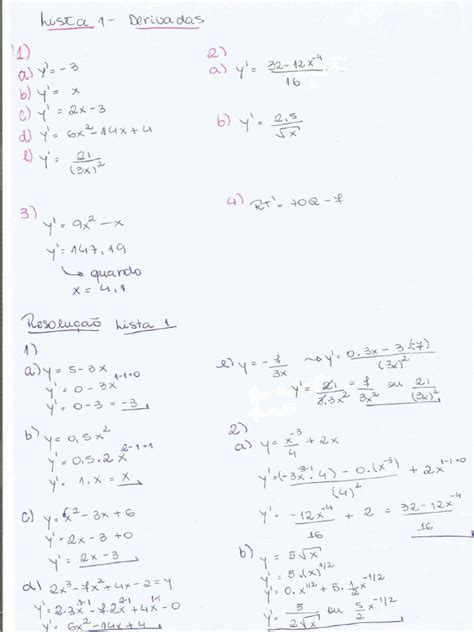 Lista 1 - Derivadas
1)
a) y' = -3
b) y' = x
c) y' = 2x - 3
d) y' = 6x² - 14x + 4
e) y' = 21/(3x)²
2)
a) y' = (32 - 12x⁻⁴)/16
b) y' = 2,5/√x
3)
y' = 9x² - x
y' = 147,19
↳ quando
x = 4,1
4) RT' = 70Q - 7
Resolução Lista 1
1)
a) y = 5 - 3x
y' = 0 - 3x¹⁻¹⁼⁰
y' = 0 - 3 = -3
b) y = 0,5x²
y' = 0,5 . 2x²⁻¹⁼¹
y' = 1 . x = x
c) y = x² - 3x + 6
y' = 2x - 3 + 0
y' = 2x - 3
d) 2x³ - 7x² + 4x - 2 = y
y' = 2.3x³⁻¹ - 7.2x²⁻¹ + 4x¹⁻¹ - 0
y' = 6x² - 14x + 4
e) y = -7/3x → y' = (0.3x - 3.(-7))/(3x)²
y' = 21/3.3x² = 7/3x² ou 21/(3x)²
2)
a) y = x⁻³/4 + 2x
y' = ((-3x⁻³⁻¹.4) - 0.(x⁻³))/(4)² + 2x¹⁻¹⁼⁰
y' = -12x⁻⁴/16 + 2 = (32 - 12x⁻⁴)/16
b) y = 5√x
y = 5.(x)¹ᐟ²
y' = 0.x¹ᐟ² + 5.1/2 x⁻¹ᐟ²
y' = 5/2√x ou 5/2 x⁻¹ᐟ²